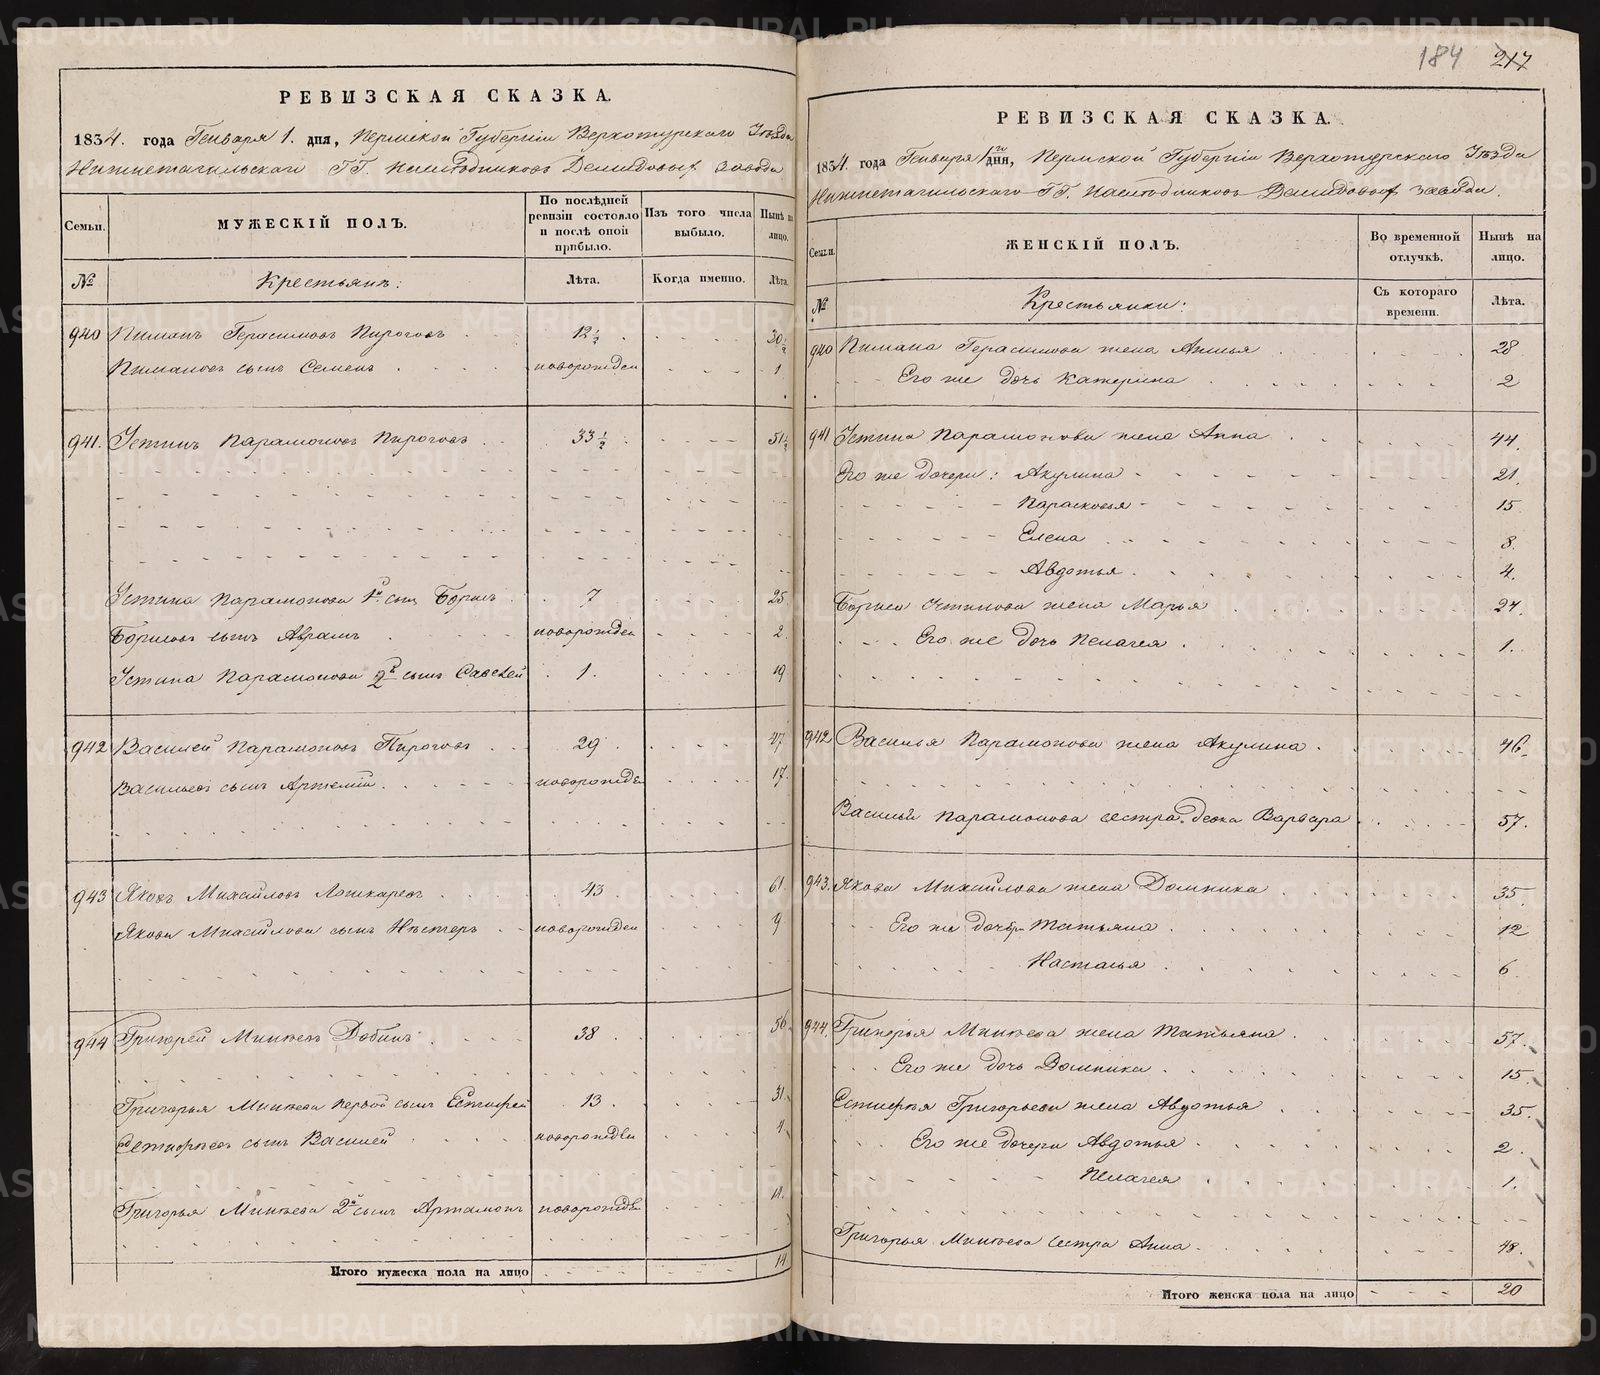 РЕВИЗСКАЯ СКАЗКА.
1834. года Генваря 1. дня, Пермской Губерніи Верхотурскаго Уѣзда
Нижнетагильскаго ГГ. Наслѣдниковъ Демидовыхъ завода
Семьи.
МУЖЕСКІЙ ПОЛЪ.
По послѣдней ревизіи состояло и послѣ оной прибыло.
Изъ того числа выбыло.
Нынѣ на лицо.
№
Крестьянъ:
Лѣта.
Когда именно.
Лѣта.
940 Пиманъ Герасимовъ Пироговъ 12½ 30½
Пимановъ сынъ Семенъ новорожден 1
941. Устинъ Парамоновъ Пироговъ 33½ 51½
Устина Парамонова 1й сынъ Борисъ 7 25
Борисовъ сынъ Аврамъ новорожден 2
Устина Парамонова 2й сынъ Савелей 1. 19
942 Василей Парамоновъ Пироговъ 29 47
Васильевъ сынъ Артемій новорожден 17.
943 Яковъ Михайловъ Лошкаревъ 43 61
Якова Михайлова сынъ Нестеръ новорожден 9
944 Григорей Минѣевъ Добинъ 38 56
Григорья Минѣева первой сынъ Естифей 13 31
Естифѣевъ сынъ Василей новорожден 4
Григорья Минѣева 2й сынъ Артамонъ новорожден 11.
Итого мужеска пола на лицо 14
184 217
РЕВИЗСКАЯ СКАЗКА.
1834 года Генваря 1го дня, Пермской Губерніи Верхотурскаго Уѣзда
Нижнетагильскаго ГГ. Наслѣдниковъ Демидовыхъ завода.
Семьи.
ЖЕНСКІЙ ПОЛЪ.
Во временной отлучкѣ.
Нынѣ на лицо.
№
Крестьянки:
Съ котораго времени.
Лѣта.
940 Пимана Герасимова жена Анисья 28
Его же дочь Катерина 2
941 Устина Парамонова жена Анна 44.
Его же дочери: Акулина 21.
Парасковья 15
Елена 8.
Авдотья 4.
Бориса Устинова жена Марья 24.
Его же дочь Пелагея 1.
942. Василья Парамонова жена Акулина 46.
Василья Парамонова сестра девка Варвара 57.
943. Якова Михайлова жена Домника 35.
Его же дочери Татьяна 12
Настасья 6
944. Григорья Минѣева жена Татьяна 57.
Его же дочь Домника 15.
Естифѣя Григорьева жена Авдотья 35.
Его же дочери Авдотья 2.
Пелагея 1.
Григорья Минѣева сестра Анна 48.
Итого женска пола на лицо 20
METRIKI.GASO-URAL.RU